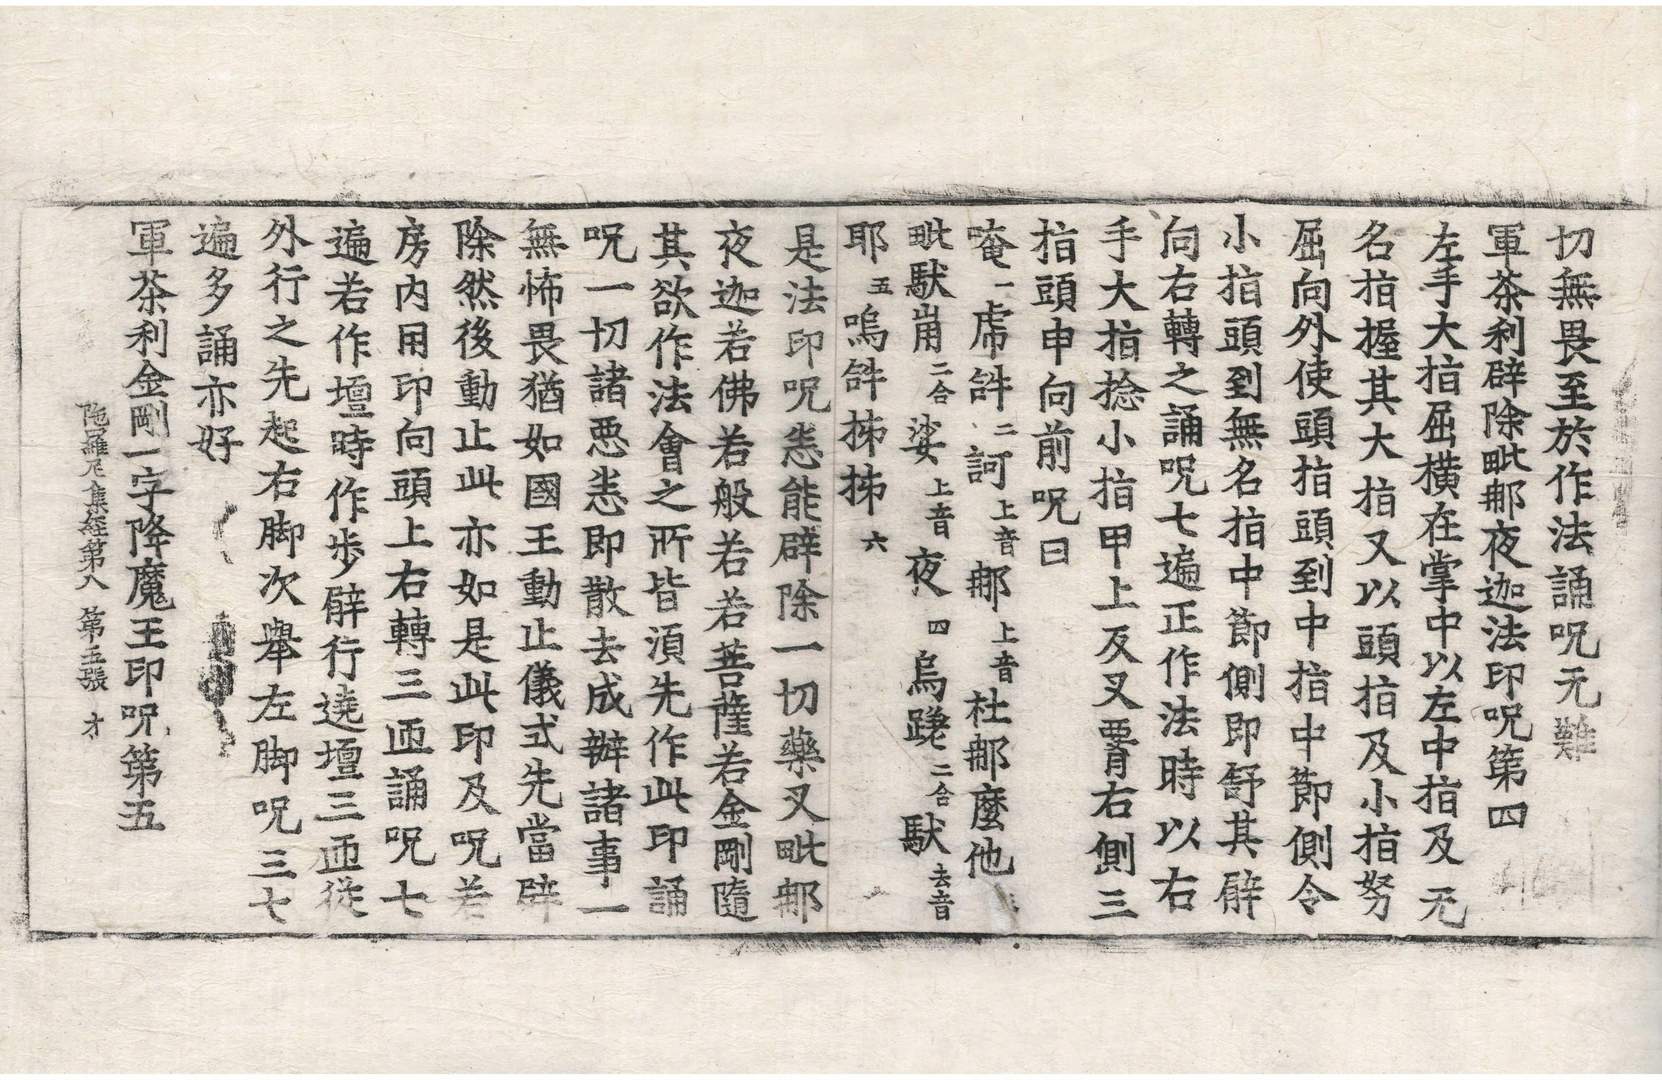 切無畏至於作法誦呪无難
軍茶利辟除毗那夜迦法印呪第四
左手大指屈橫在掌中以左中指及无
名指握其大指又以頭指及小指努
屈向外使頭指頭到中指中節側令
小指頭到無名指中節側即舒其臂
向右轉之誦呪七遍正作法時以右
手大指捻小指甲上反叉臋右側三
指頭申向前呪曰
唵一虎𤙖二訶上音那上音杜那麼他
毗馱崩二合娑上音夜四烏蹽二合馱去音
耶五嗚𤙖㧊㧊六
是法印呪悉能辟除一切藥叉毗那
夜迦若佛若般若若菩薩若金剛隨
其欲作法會之所皆須先作此印誦
呪一切諸惡悉即散去成辦諸事一
無怖畏猶如國王動止儀式先當辟
除然後動止此亦如是此印及呪若
房内用印向頭上右轉三匝誦呪七
遍若作壇時作步擗行遶壇三匝從
外行之先起右脚次舉左脚呪三七
遍多誦亦好
軍茶利金剛一字降魔王印呪第五
陁羅尼集經第八 第五張 才